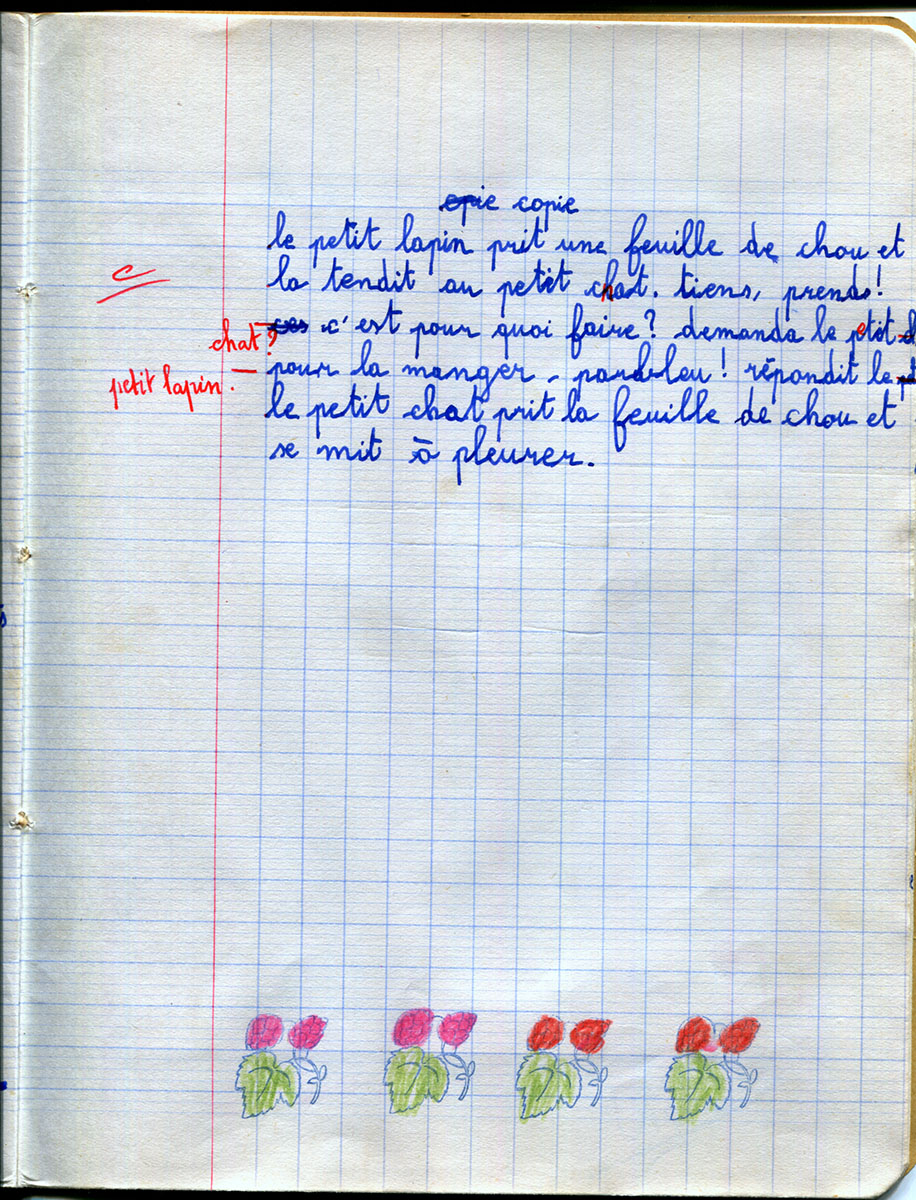 copie
le petit lapin prit une feuille de chou et
la tendit au petit chat. tiens, prends!
c'est pour quoi faire? demanda le petit
chat?
pour la manger. pardleu! répondit le
petit lapin. —
le petit chat prit la feuille de chou et
se mit à pleurer.
c